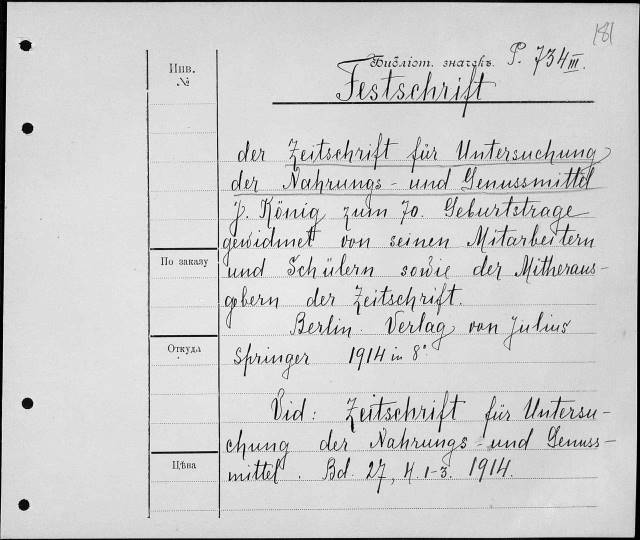 181
Библіот. значекъ. P. 734 III.
Инв.
№
Festschrift
der Zeitschrift für Untersuchung
der Nahrungs- und Genussmittel
J. König zum 70. Geburtstrage
gewidmet von seinen Mitarbeitern
По заказу
und Schülern sowie der Mitheraus-
gebern der Zeitschrift.
Berlin. Verlag von Julius
Откуда
Springer 1914 in 8°
Vid: Zeitschrift für Untersu-
chung der Nahrungs- und Genuss-
Цѣна
mittel. Bd. 27, H. 1-3. 1914.